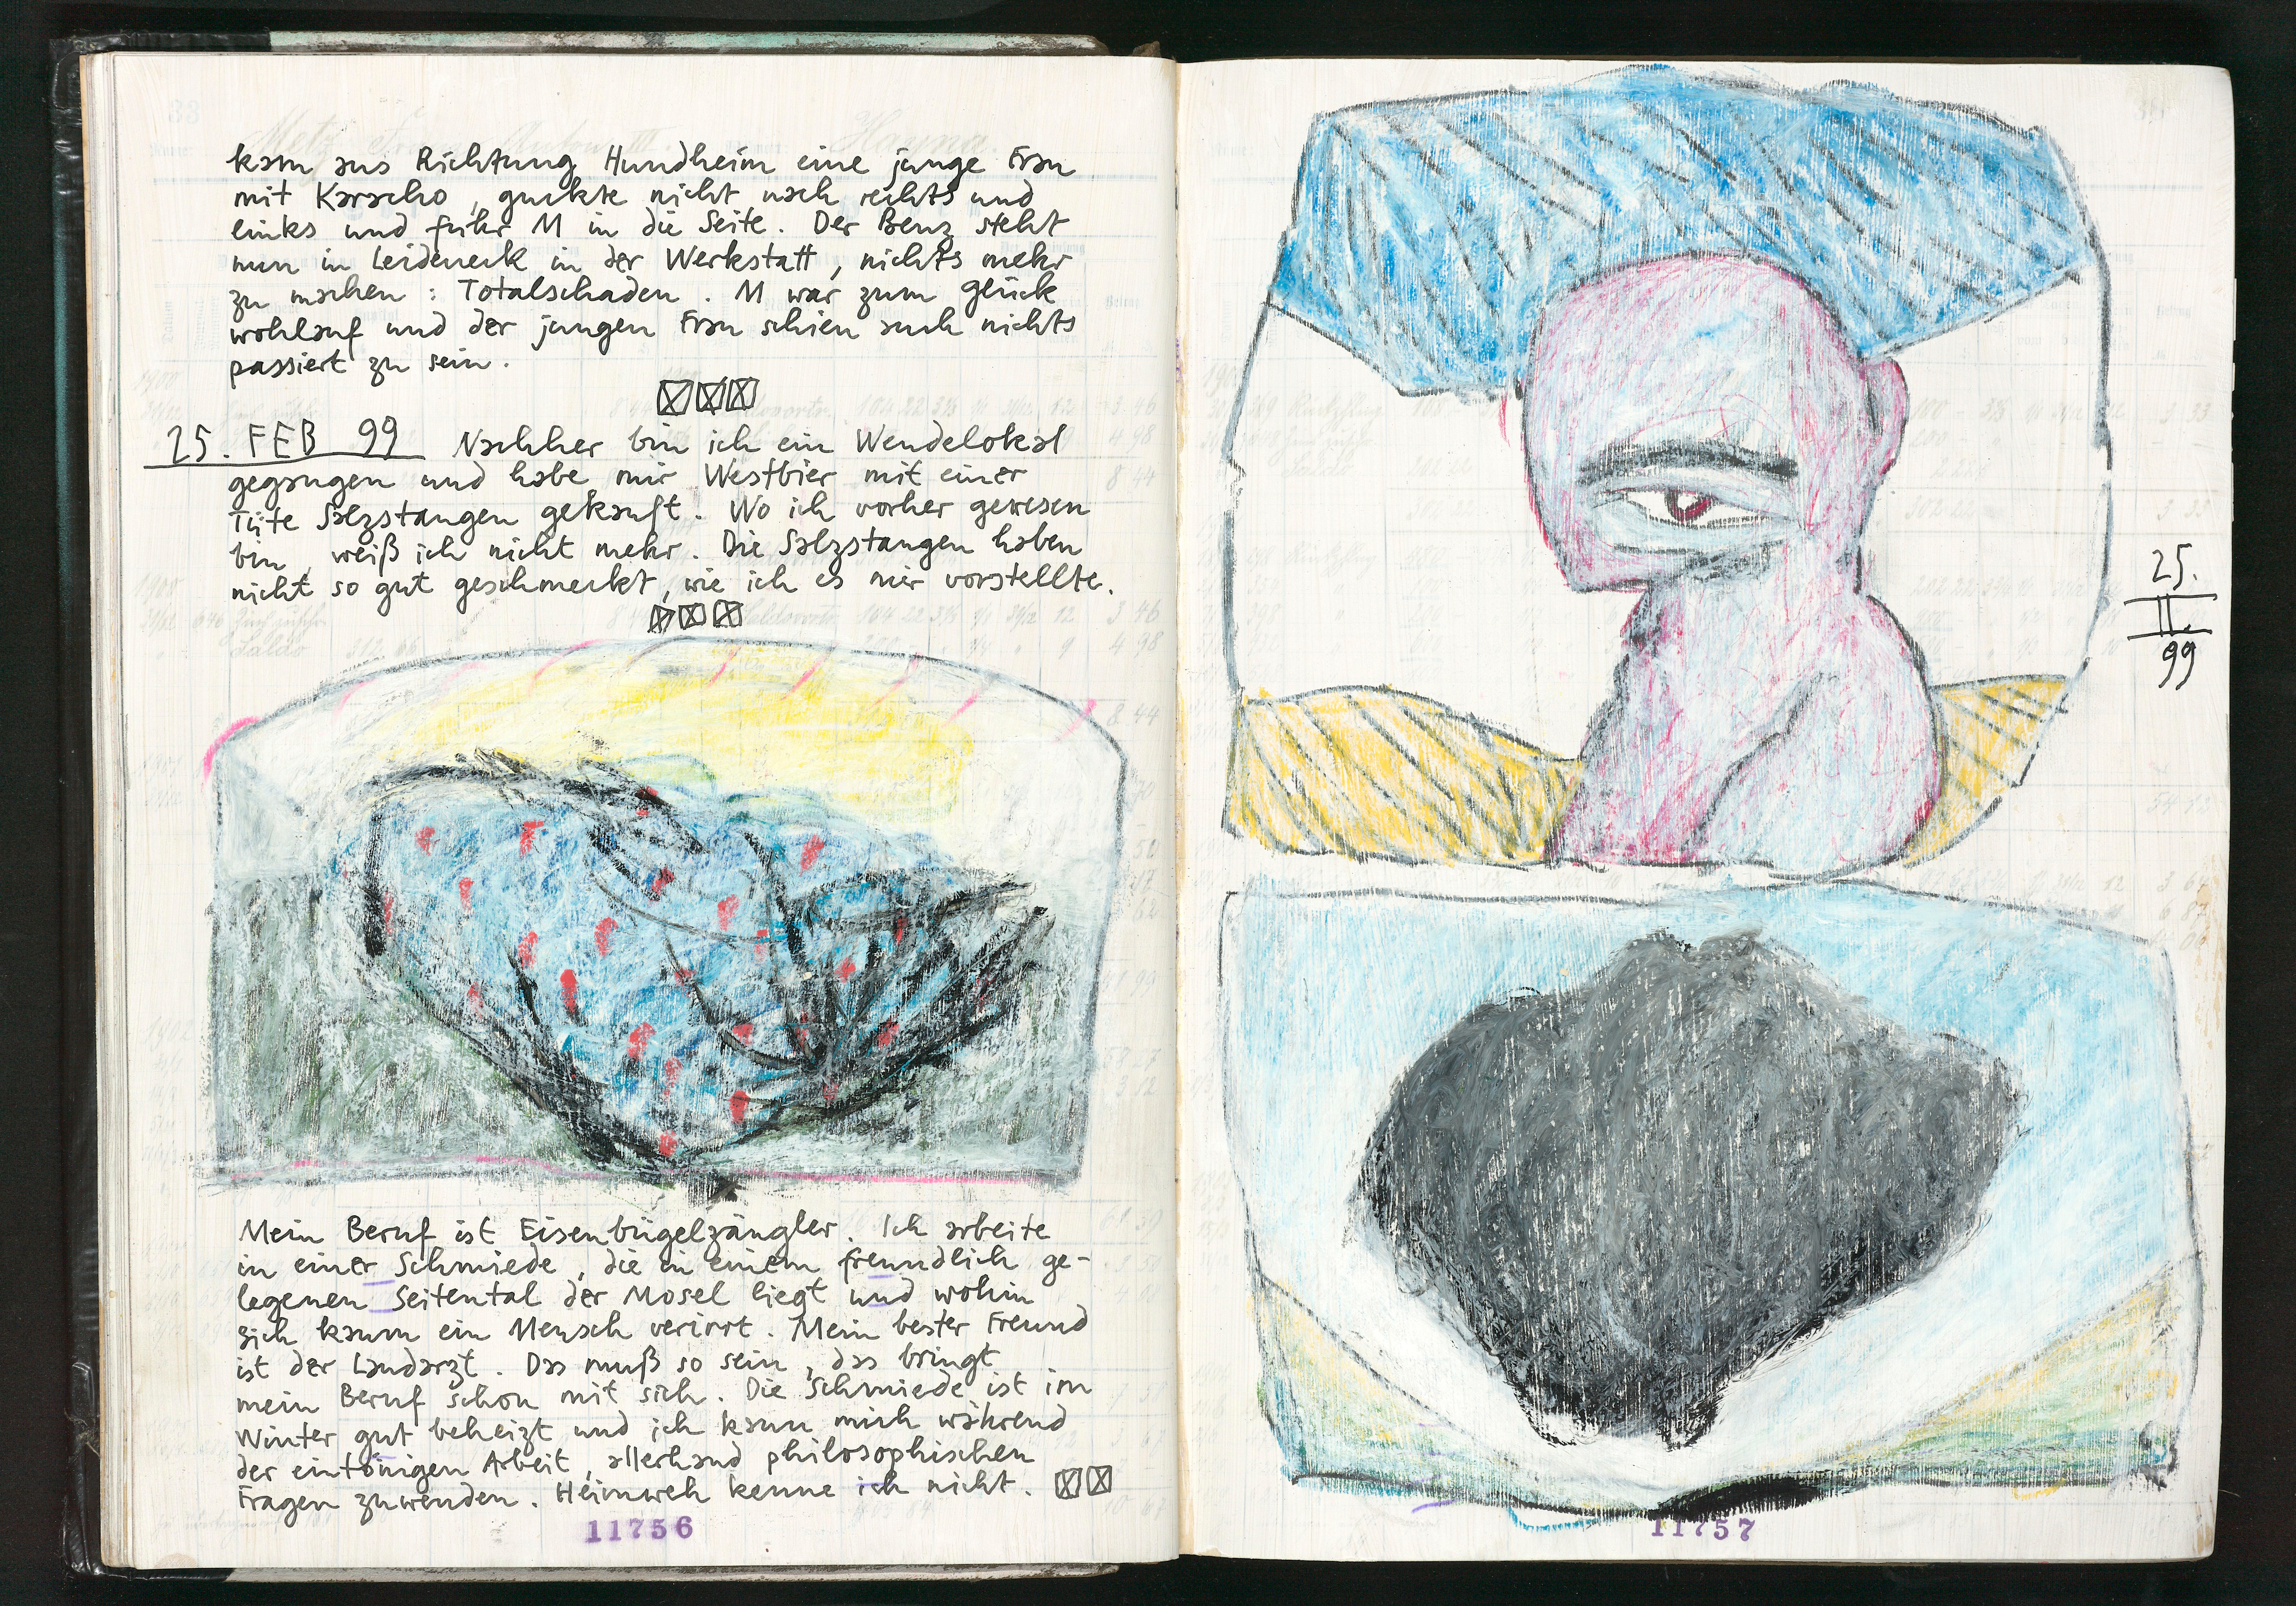 kam aus Richtung Hundheim eine junge Frau
mit Karacho, guckte nicht nach rechts und
links und fuhr M in die Seite. Der Benz steht
nun in Leideneck in der Werkstatt, nichts mehr
zu machen: Totalschaden. M war zum Glück
wohlauf und der jungen Frau schien auch nichts
passiert zu sein.
25. FEB 99 Nachher bin ich ein Wendelokal
gegangen und habe mir Westbier mit einer
Tüte Salzstangen gekauft. Wo ich vorher gewesen
bin, weiß ich nicht mehr. Die Salzstangen haben
nicht so gut geschmeckt, wie ich es mir vorstellte.
Mein Beruf ist Eisenbügelzängler. Ich arbeite
in einer Schmiede, die in einem freundlich ge-
legenen Seitental der Mosel liegt und wohin
sich kaum ein Mensch verirrt. Mein bester Freund
ist der Landarzt. Das muß so sein, das bringt
mein Beruf schon mit sich. Die Schmiede ist im
Winter gut beheizt und ich kann mich während
der eintönigen Arbeit, allerhand philosophischen
Fragen zuwenden. Heimweh kenne ich nicht.
11756
25.
II.
99
11757